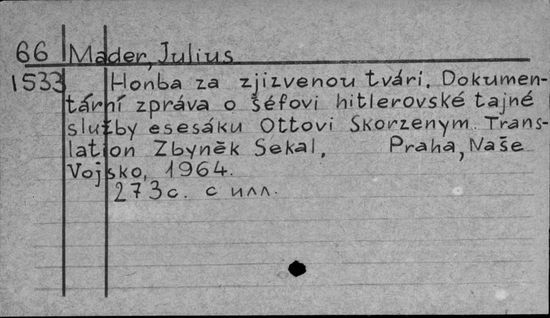 66 Mader, Julius
1533 Honba za zjizvenou tvári. Dokumen-
tární zpráva o šéfovi hitlerovské tajné
služby esesáku Ottovi Skorzenym. Trans-
lation Zbyněk Sekal, Praha, Naše
Vojsko, 1964.
273 с. с илл.